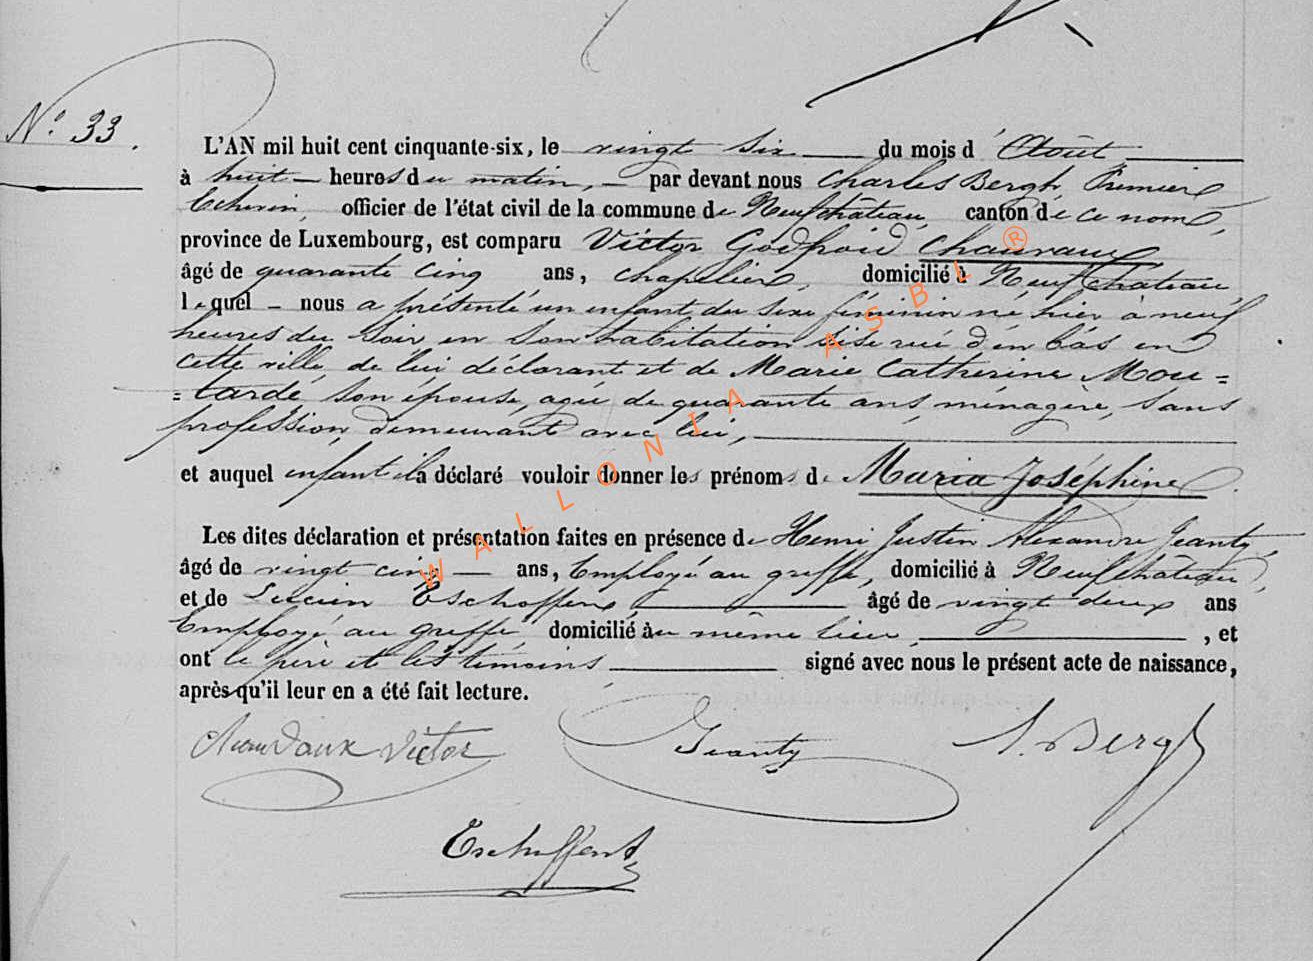 N.° 33.
L'AN mil huit cent cinquante-six, le vingt six du mois d'Août
à huit heures du matin, par devant nous Charles Bergh, Premier
Echevin, officier de l'état civil de la commune de Neufchâteau, canton de ce nom,
province de Luxembourg, est comparu Victor Godfroid Chauvaux,
âgé de quarante cinq ans, chapelier, domicilié à Neufchâteau,
lequel nous a présenté un enfant du sexe féminin né hier à neuf
heures du soir en son habitation sise rue d'en bas en
cette ville, de lui déclarant et de Marie Catherine Mou=
=tarde son épouse, agée de quarante ans, ménagère, sans
profession, demeurant avec lui,
et auquel enfant il a déclaré vouloir donner les prénoms de Maria Joséphine.
Les dites déclaration et présentation faites en présence de Henri Justin Alexandre Jeanty,
âgé de vingt cinq ans, Employé au greffe, domicilié à Neufchâteau,
et de Lucien Eschoffen, âgé de vingt deux ans
Employé au greffe domicilié au même lieu, et
ont le père et les témoins signé avec nous le présent acte de naissance,
après qu'il leur en a été fait lecture.
Victor Jeanty Bergh
WALLONIA ASBL ®